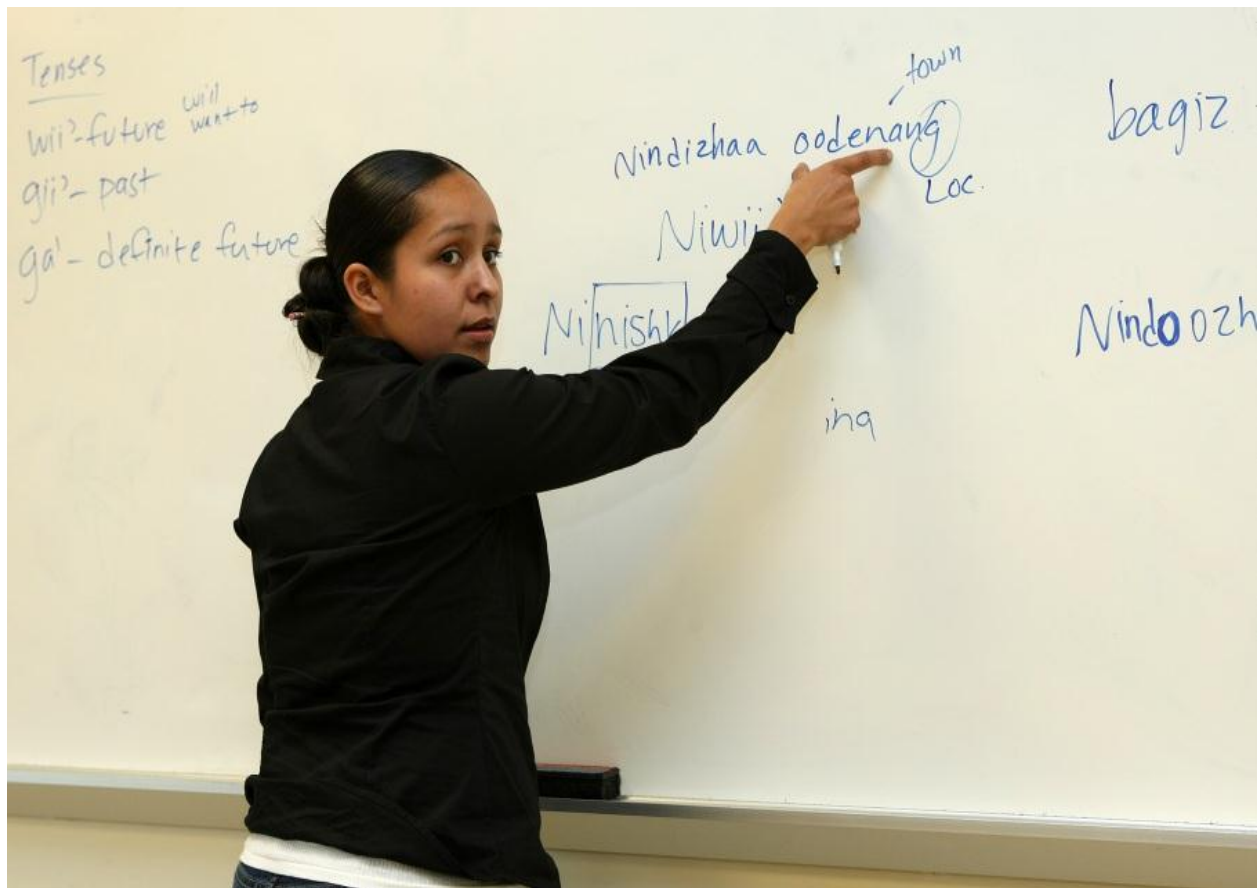 Tenses
wii'-future will want to
gii'- past
ga'- definite future
town
Nindizhaa oodenang
Loc.
Niwii'
Ninishk
ing
bagiz
Nindoozh